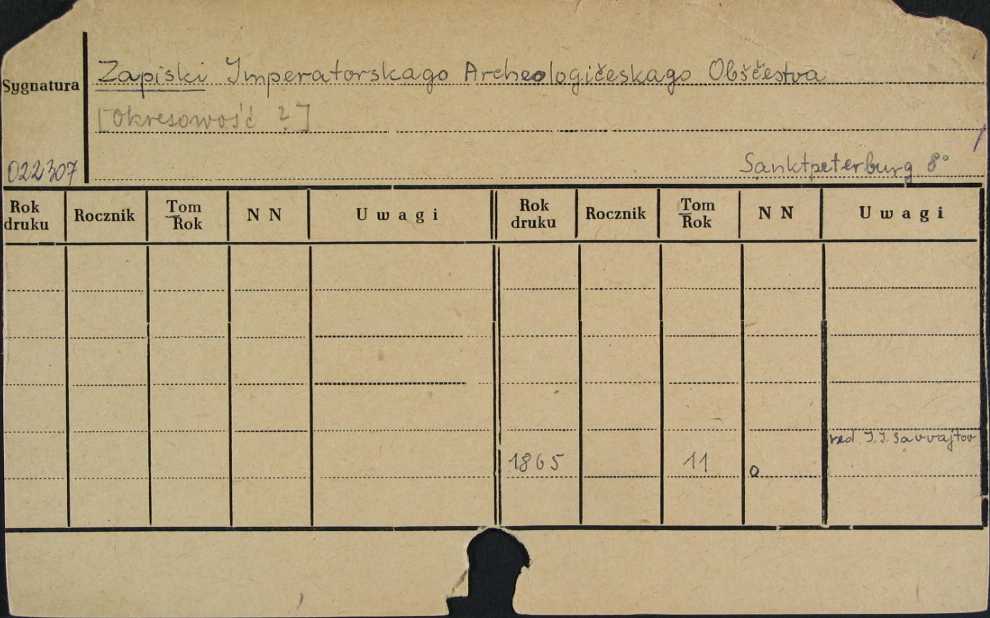 Zapiski Imperatorskago Archeologičeskago Obščestva
Sygnatura
[Okresowość ?]
022307
Sanktpeterburg 8°
Rok druku Rocznik Tom Rok N N Uwagi Rok druku Rocznik Tom Rok N N Uwagi
red. I. I. Savvajtov
1865 11 0